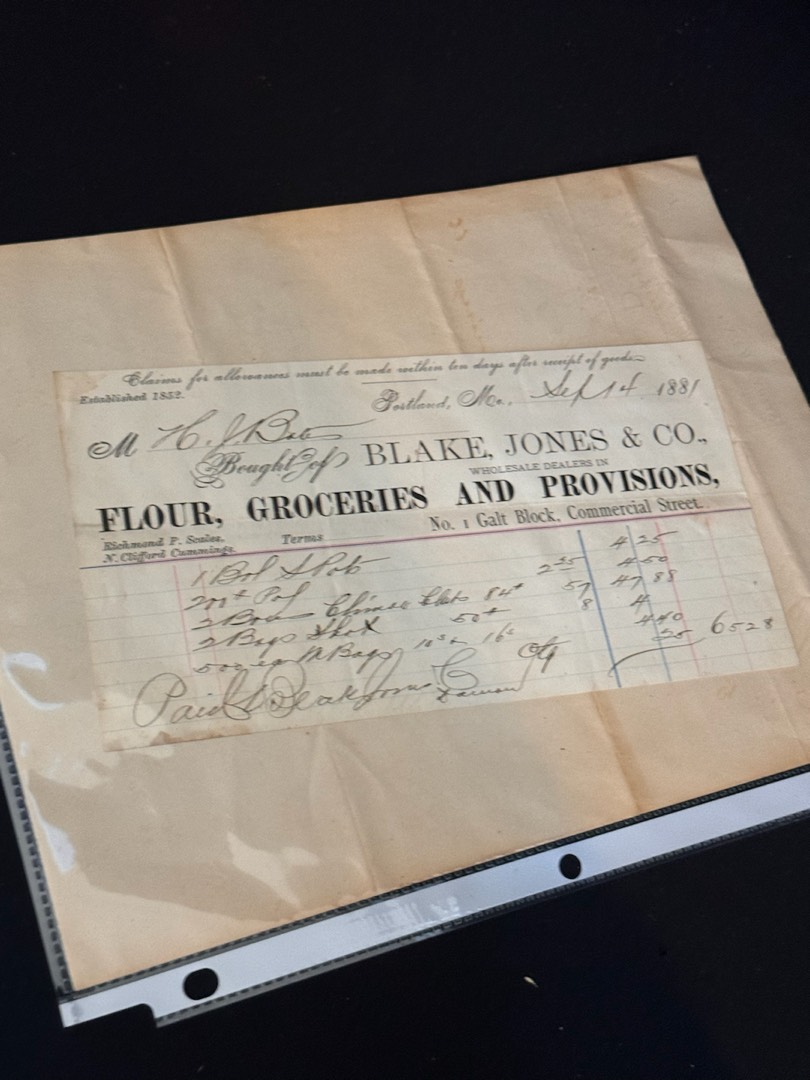 Claims for allowances must be made within ten days after receipt of goods
Established 1852.
Portland, Me., Sep 14 1881
M H. J. Bates
Bought of BLAKE, JONES & CO.,
WHOLESALE DEALERS IN
FLOUR, GROCERIES AND PROVISIONS,
Richmond P. Scales, Terms No. 1 Galt Block, Commercial Street.
N. Clifford Cummings.
1 Bbl 4 25
200# 2 25 4 50
2 Chimac 84# 57 47 88
2 Bags 50# 8 4
500 Bags 4 40
25 65 28
Paid Blake Jones Co